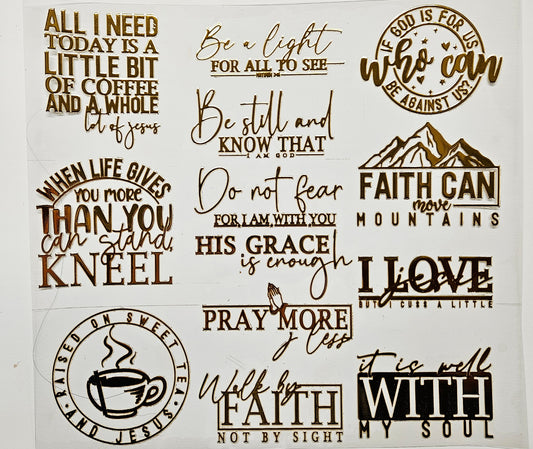 ALL I NEED
TODAY IS A
LITTLE BIT
OF COFFEE
AND A WHOLE
lot of Jesus
WHEN LIFE GIVES
YOU MORE
THAN YOU
can stand,
KNEEL
RAISED ON SWEET TEA
AND JESUS
Be a light
FOR ALL TO SEE
Be still and
KNOW THAT
I AM GOD
Do not fear
FOR I AM WITH YOU
HIS GRACE
is enough
PRAY MORE
less
Walk by
FAITH
NOT BY SIGHT
IF GOD IS FOR US
who can
BE AGAINST US?
FAITH CAN
move
MOUNTAINS
I LOVE
Jesus
BUT I CUSS A LITTLE
it is well
WITH
MY SOUL